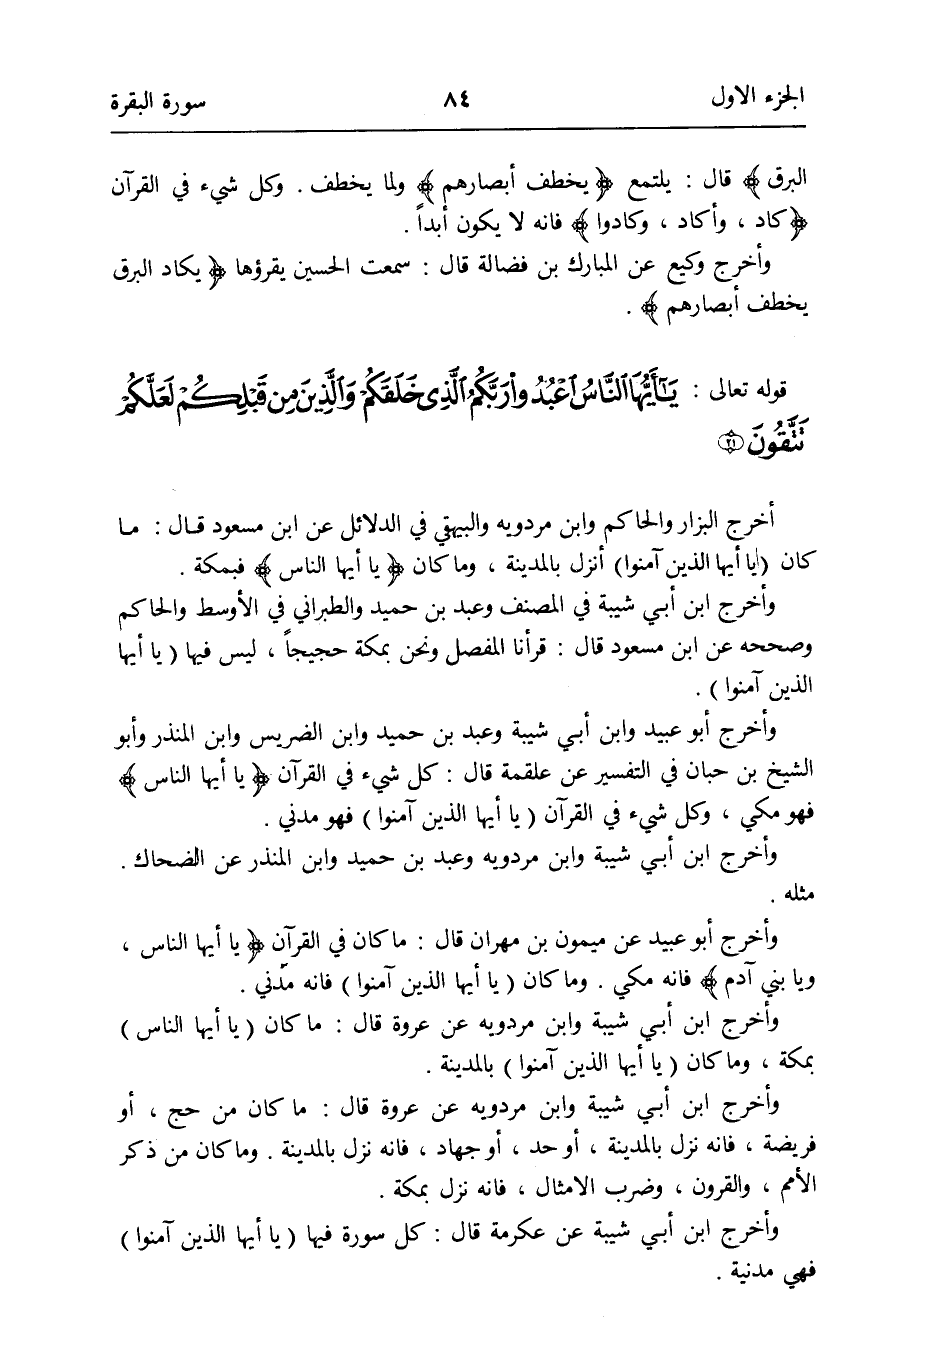 الجزء الاول ٨٤ سورة البقرة
البرق ﴾ قال : يلتمع ﴿ يخطف أبصارهم ﴾ ولما يخطف . وكل شيء في القرآن
﴿ كاد ، وأكاد ، وكادوا ﴾ فانه لا يكون أبداً .
وأخرج وكيع عن المبارك بن فضالة قال : سمعت الحسين يقرؤها ﴿ يكاد البرق
يخطف أبصارهم ﴾ .
قوله تعالى : يَٰٓأَيُّهَا ٱلنَّاسُ ٱعۡبُدُواْ رَبَّكُمُ ٱلَّذِى خَلَقَكُمۡ وَٱلَّذِينَ مِن قَبۡلِكُمۡ لَعَلَّكُمۡ
تَتَّقُونَ ٢١
أخرج البزار والحاكم وابن مردويه والبيهقي في الدلائل عن ابن مسعود قال : ما
كان (ايا أيها الذين آمنوا) أنزل بالمدينة ، وما كان ﴿ يا أيها الناس ﴾ فبمكة .
وأخرج ابن أبي شيبة في المصنف وعبد بن حميد والطبراني في الأوسط والحاكم
وصححه عن ابن مسعود قال : قرأنا المفصل ونحن بمكة حجيجاً ، ليس فيها ( يا أيها
الذين آمنوا ) .
وأخرج أبو عبيد وابن أبي شيبة وعبد بن حميد وابن الضريس وابن المنذر وأبو
الشيخ بن حبان في التفسير عن علقمة قال : كل شيء في القرآن ﴿ يا أيها الناس ﴾
فهو مكي ، وكل شيء في القرآن ( يا أيها الذين آمنوا ) فهو مدني .
وأخرج ابن أبي شيبة وابن مردويه وعبد بن حميد وابن المنذر عن الضحاك .
مثله .
وأخرج أبو عبيد عن ميمون بن مهران قال : ما كان في القرآن ﴿ يا أيها الناس ،
ويا بني آدم ﴾ فانه مكي . وما كان ( يا أيها الذين آمنوا ) فانه مدني .
وأخرج ابن أبي شيبة وابن مردويه عن عروة قال : ما كان ( يا أيها الناس )
بمكة ، وما كان ( يا أيها الذين آمنوا ) بالمدينة .
وأخرج ابن أبي شيبة وابن مردويه عن عروة قال : ما كان من حج ، أو
فريضة ، فانه نزل بالمدينة ، أو حد ، أو جهاد ، فانه نزل بالمدينة . وما كان من ذكر
الأمم ، والقرون ، وضرب الامثال ، فانه نزل بمكة .
وأخرج ابن أبي شيبة عن عكرمة قال : كل سورة فيها ( يا أيها الذين آمنوا )
فهي مدنية .